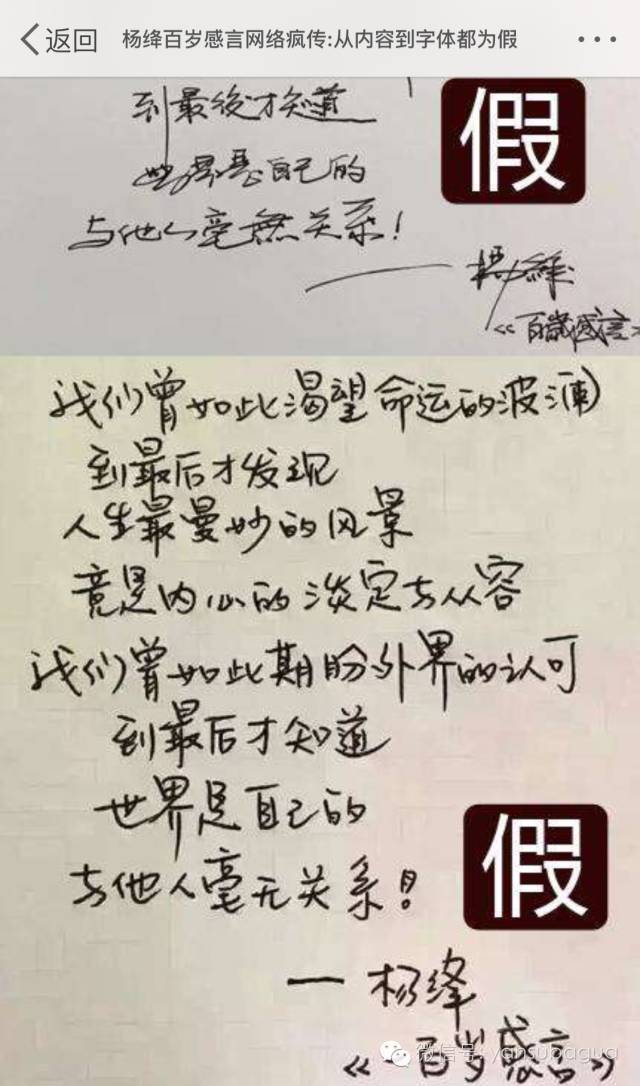 返回 杨绛百岁感言网络疯传:从内容到字体都为假
到最後才知道
假
世界是自己的
与他人毫無关系!
—— 杨絳
《百歲感言》
我们曾如此渴望命运的波澜
到最后才发现
人生最曼妙的风景
竟是内心的淡定与从容
我们曾如此期盼外界的认可
到最后才知道
世界是自己的
与他人毫无关系!
假
— 杨绛
《百岁感言》
微信号: yansubagua